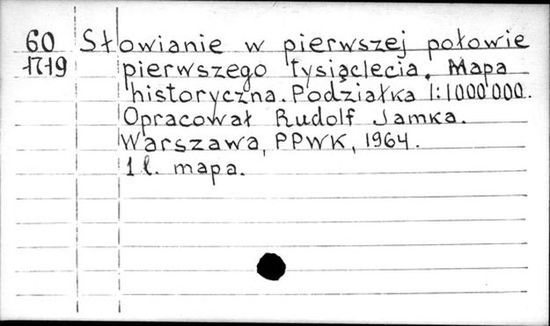 60 Słowianie w pierwszej połowie
1719 pierwszego tysiąclecia. Mapa
historyczna. Podziałka 1:1000000.
Opracował Rudolf Jamka.
Warszawa, PPWK, 1964.
1 l. mapa.